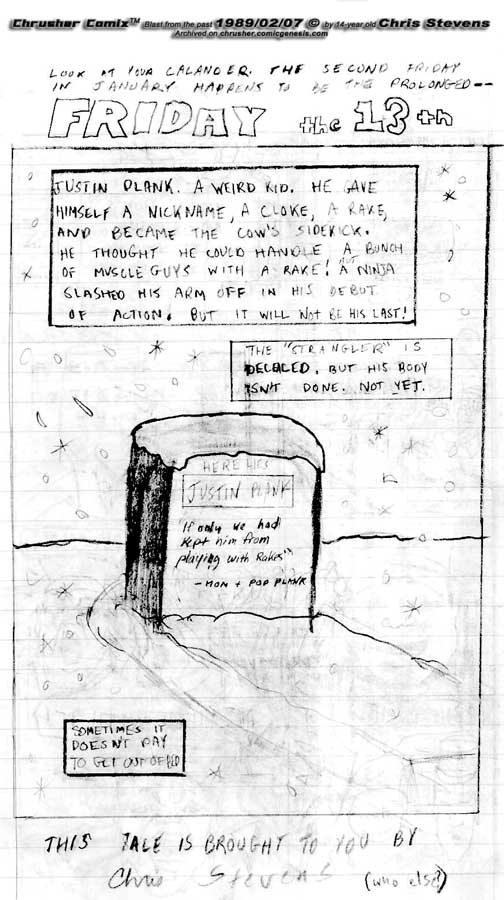 Chrusher Comix™ Blast from the past 1989/02/07 © by 14-year old Chris Stevens
Archived on chrusher.comicgenesis.com
LOOK AT YOUR CALANDER. THE SECOND FRIDAY
IN JANUARY HAPPENS TO BE THE PROLONGED--
FRIDAY the 13th
JUSTIN PLANK. A WEIRD KID. HE GAVE
HIMSELF A NICKNAME, A CLOKE, A RAKE,
AND BECAME THE COW'S SIDEKICK.
HE THOUGHT HE COULD HANDLE A BUNCH
OF MUSCLE GUYS WITH A RAKE! BUT A NINJA
SLASHED HIS ARM OFF IN HIS DEBUT
OF ACTION. BUT IT WILL NOT BE HIS LAST!
THE "STRANGLER" IS
, BUT HIS BODY
ISN'T DONE. NOT YET.
HERE LIES
JUSTIN PLANK
"If only we had
kept him from
playing with Rakes"
- MON + POP PLANK
SOMETIMES IT
DOESN'T PAY
TO GET OUT OF BED
THIS TALE IS BROUGHT TO YOU BY
Chris Stevens (who else?)